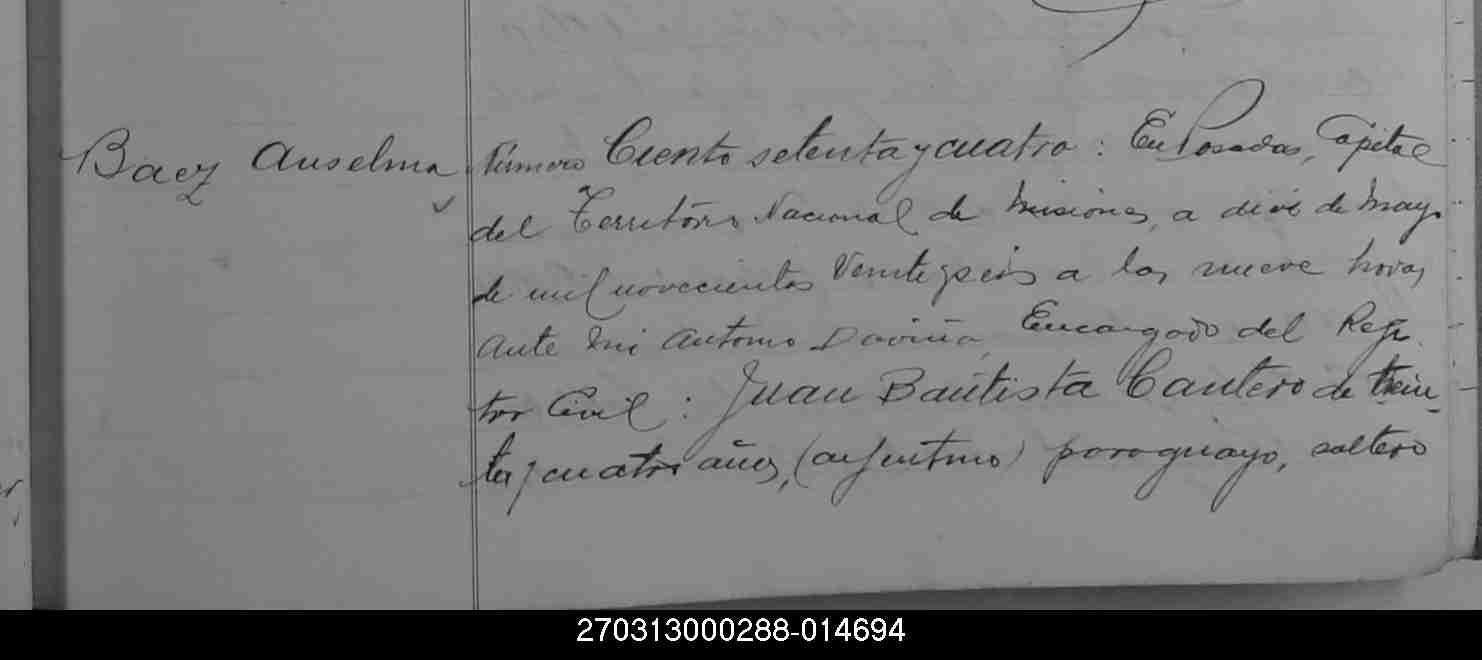 Baez Anselma
Número Ciento setenta y cuatro : En Posadas, Capital
del Territorio Nacional de Misiones, a diez de Mayo
de mil novecientos veinte y seis a las nueve horas
ante mi Antonio Daviña, Encargado del Regis
tro Civil : Juan Bautista Cantero de trein_
ta y cuatro años, (argentino) paraguayo, soltero
270313000288-014694